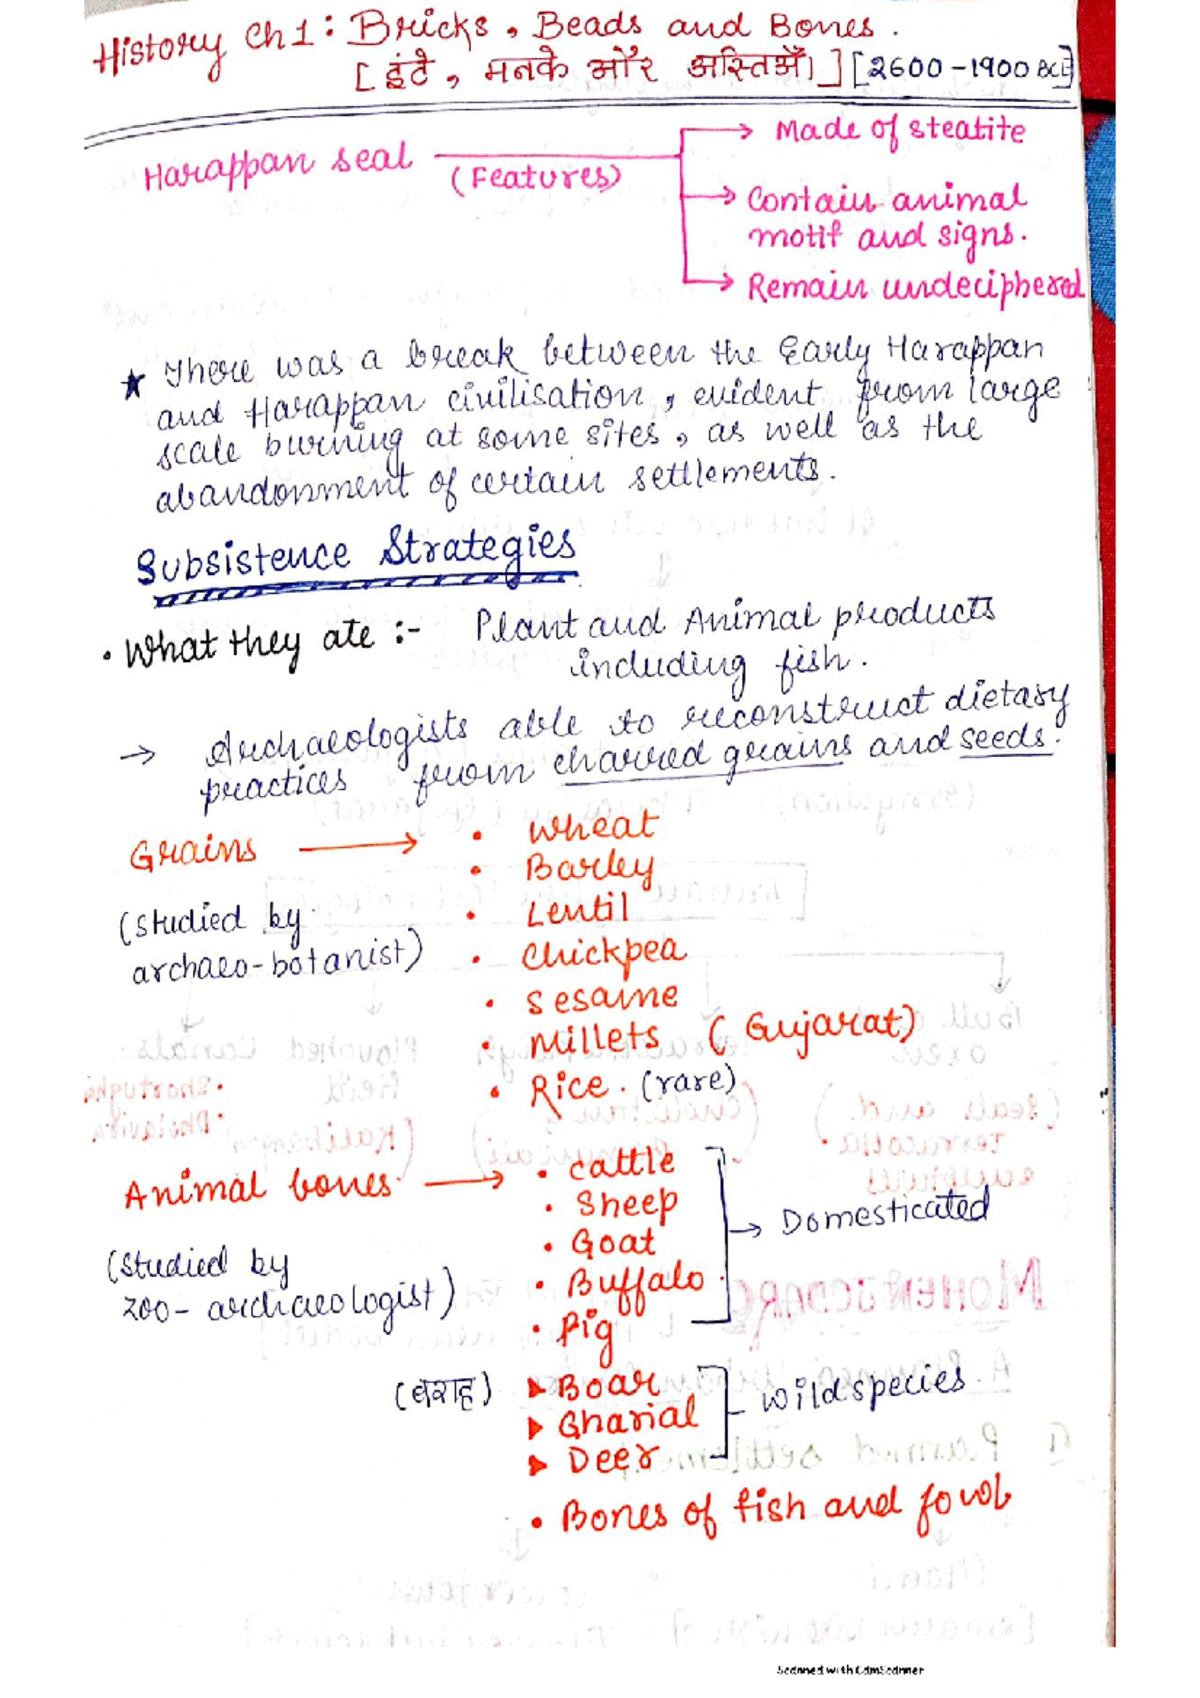 History Ch1: Bricks, Beads and Bones.
[इंटे, मनके और अस्तिअँ।] [2600-1900 BCE]
Harappan seal (Features)
→ Made of steatite
→ Contain animal
motif and signs.
→ Remain undeciphered
★ There was a break between the Early Harappan
and Harappan civilisation, evident from large
scale burning at some sites, as well as the
abandonment of certain settlements.
Subsistence Strategies
• What they ate :- Plant and Animal products
including fish.
→ Archaeologists able to reconstruct dietary
practices from charred grains and seeds.
Grains → • Wheat
• Barley
(studied by • Lentil
archaeo-botanist) • Chickpea
• Sesame
• Millets (Gujarat)
• Rice. (rare)
Animal bones → • cattle
• Sheep
→ Domesticated
• Goat
(Studied by • Buffalo
zoo-archaeologist)
• Pig
(वराह) ➤ Boar
wild species
➤ Gharial
➤ Deer
• Bones of fish and fowl
Scanned with CamScanner